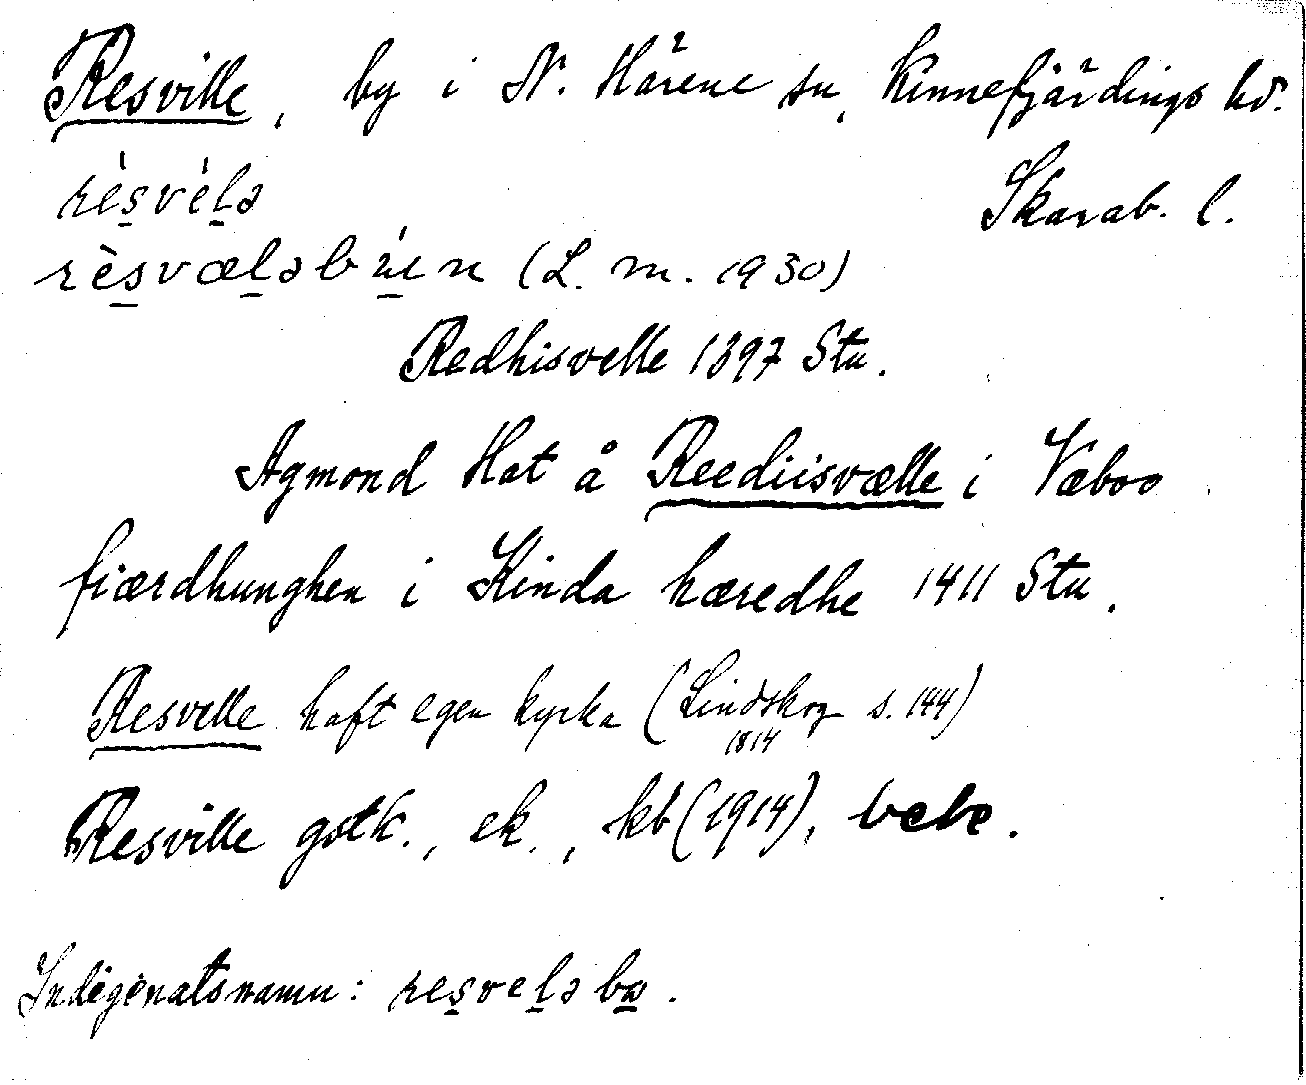 Resville, by i N. Härene sn, Kinnefjärdings hd.
Skarab. l.
résvélə
rèsvæləbýen (L. m. 1930)
Redhisvelle 1397 Stu.
Agmond Hat å Reediisvælle i Væboo
fiærdhunghen i Kinda hæredhe 1411 Stu.
Resvelle haft egen kyrka (Lindskog s. 144)
1814
Resville gstk., ek., kb (1914), bebe.
Indigenatsnamn: resveləba.